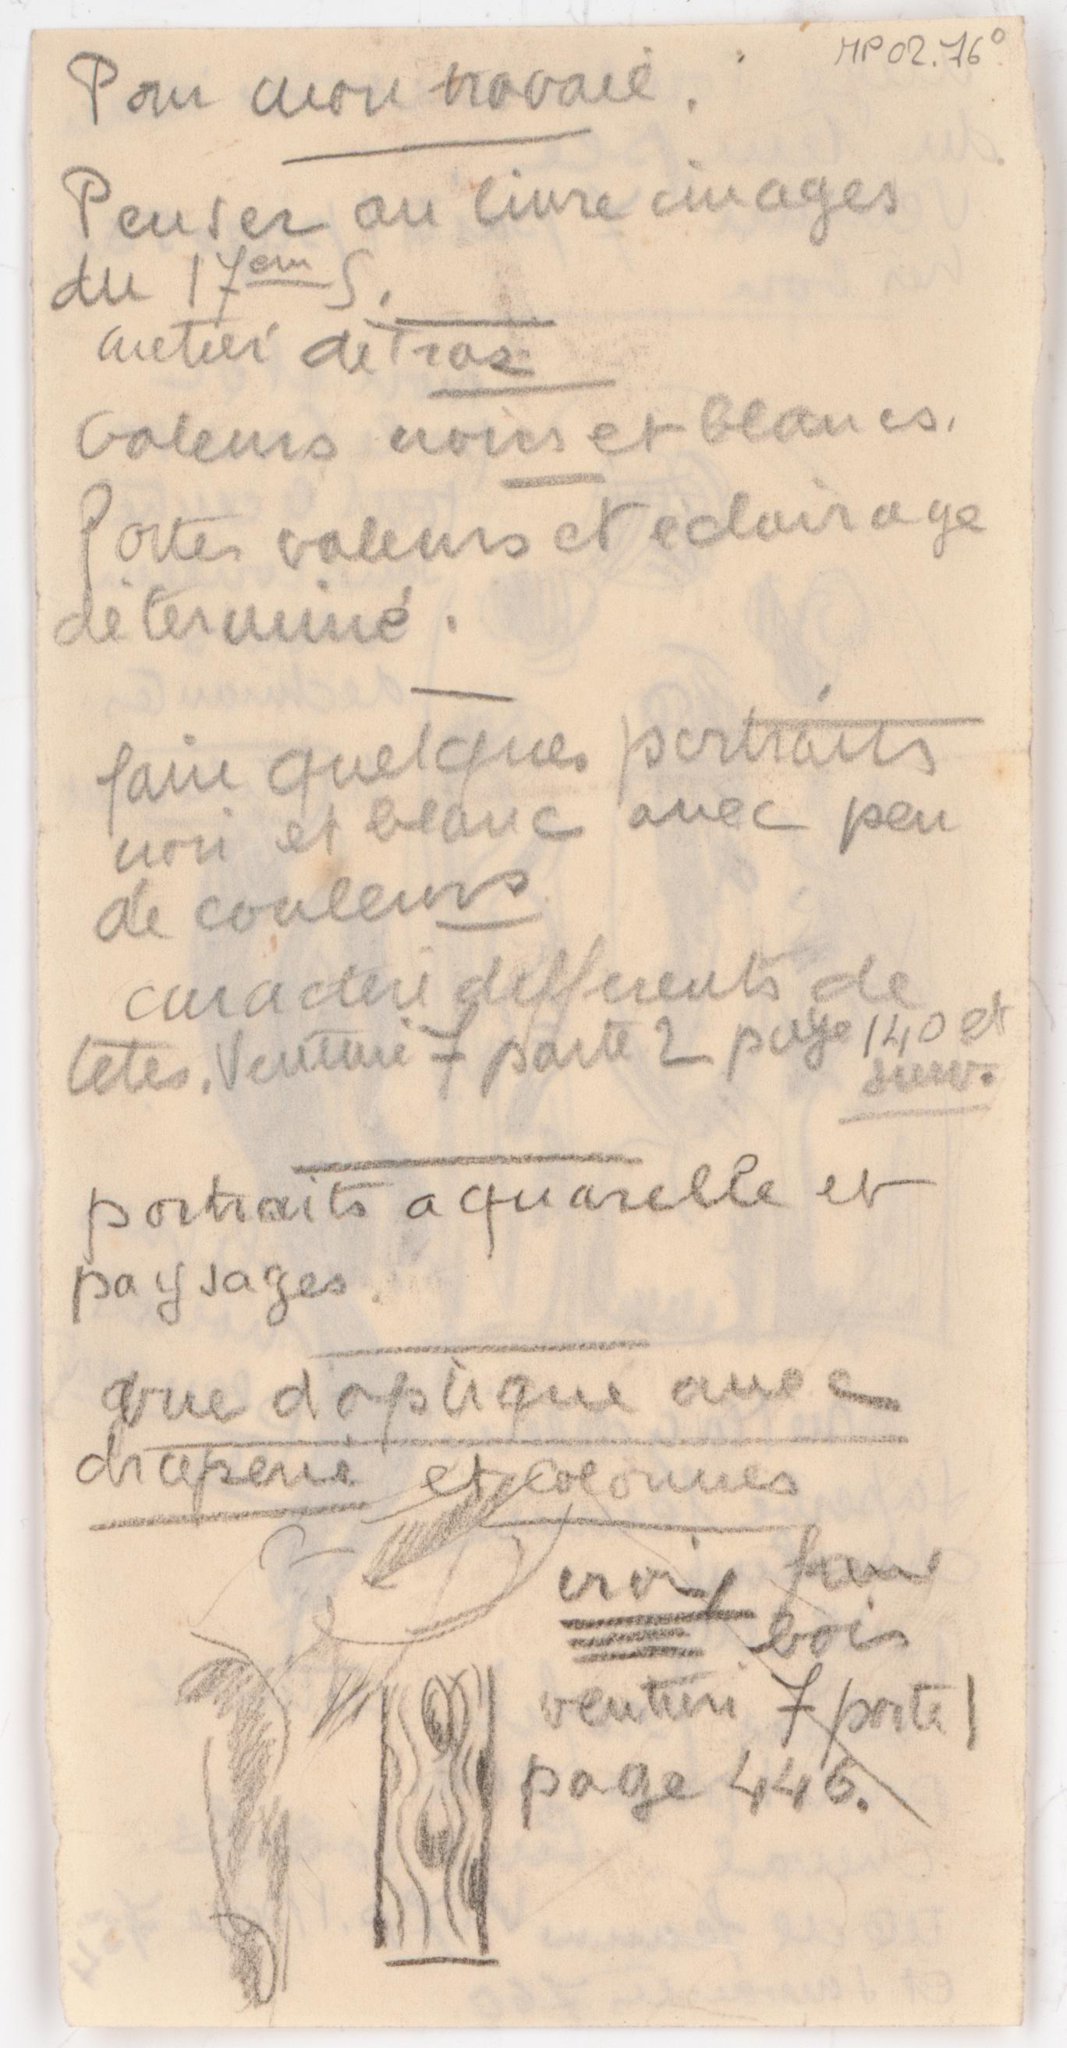 MP02.76°
Pour mon travail.
Penser au livre images
du 17em S.
metier de Tros
Valeurs noirs et blancs.
Portes valeurs et eclairage
déterminé.
faire quelques portraits
noir et blanc avec peu
de couleurs
caractere differents de
tetes. Venturi 7 parte 2 page 140 et
suiv.
portraits aquarelle et
paysages.
vue d'optique avec
draperie et colonnes
croix faux
bois
venturi 7 parte 1
page 446.